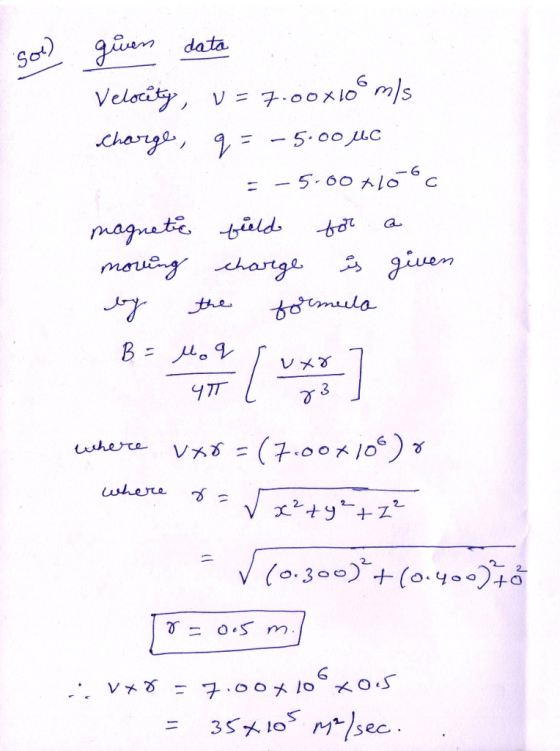 Sol) given data
Velocity, V = 7.00×10⁶ m/s
charge, q = -5.00 μc
= -5.00 ×10⁻⁶ c
magnetic field for a
moving charge is given
by the formula
B = μ₀q/4π [v×r/r³]
where v×r = (7.00×10⁶) r
where r = √(x²+y²+z²)
= √((0.300)²+(0.400)²+0²)
r = 0.5 m.
∴ v×r = 7.00×10⁶×0.5
= 35×10⁵ m²/sec.